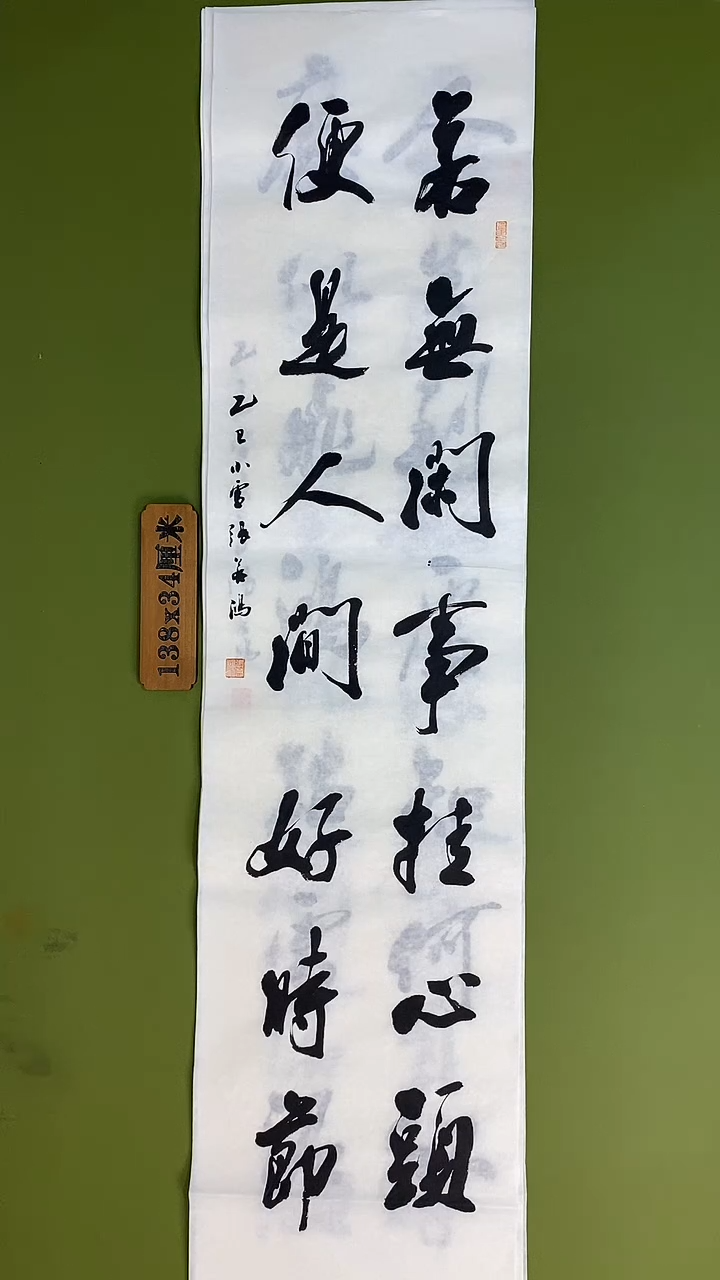 若無閑事挂心頭
便是人間好時節
乙巳小雪張善鴻
138x34厘米